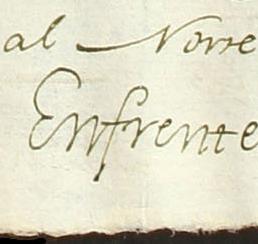 al Norre
Enfrente